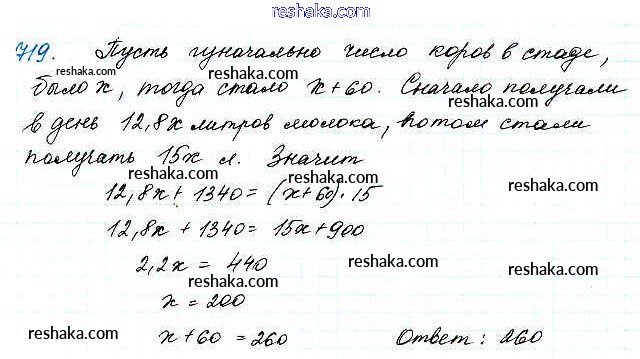 reshaka.com
719. Пусть изначально число коров в стаде,
reshaka.com
reshaka.com
было x, тогда стало x+60. Сначало получали
reshaka.com
в день 12,8x литров молока, потом стали
reshaka.com
получать 15x л. Значит
reshaka.com
reshaka.com
12,8x + 1340 = (x+60)·15
reshaka.com
12,8x + 1340 = 15x+900
2,2x = 440
reshaka.com
reshaka.com
x = 200
reshaka.com
reshaka.com
x+60 = 260 Ответ: 260